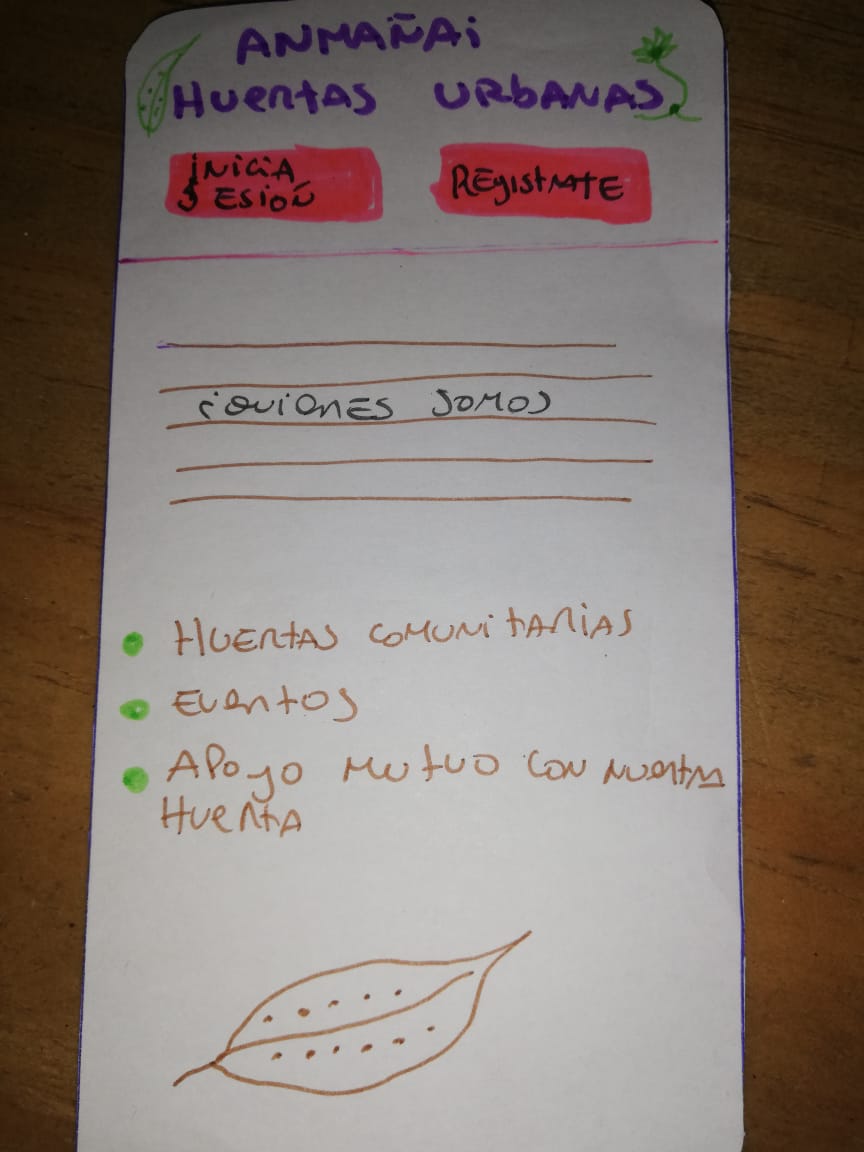 ANMAÑAi
HUERTAS URBANAS
INICIA
SESIOÑ
REGISTRATE
¿QUIONES SOMOS
HUERTAS COMUNITARIAS
EVENTOS
APOYO MUTUO CON NUESTRA
HUERTA